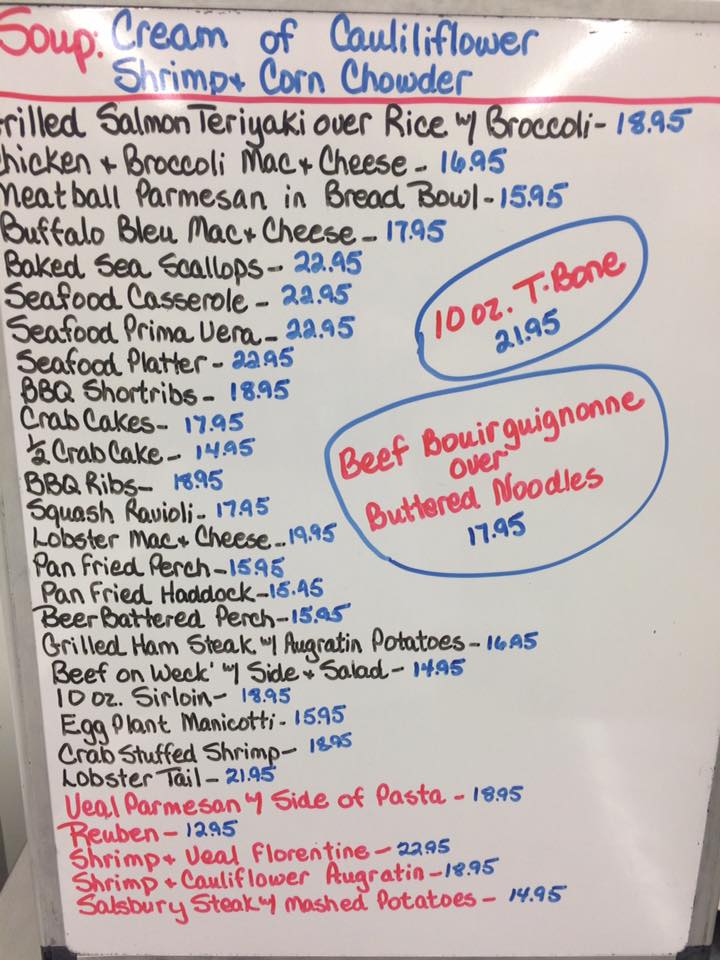 Soup: Cream of Cauliliflower
Shrimp + Corn Chowder
rilled Salmon Teriyaki over Rice w/ Broccoli - 18.95
hicken + Broccoli Mac + Cheese - 16.95
Meatball Parmesan in Bread Bowl - 15.95
Buffalo Bleu Mac + Cheese - 17.95
Baked Sea Scallops - 22.95
Seafood Casserole - 22.95
Seafood Prima Vera - 22.95
Seafood Platter - 22.95
BBQ Shortribs - 18.95
Crab Cakes - 17.95
½ Crab Cake - 14.95
BBQ Ribs - 18.95
Squash Ravioli - 17.95
Lobster Mac + Cheese - 19.95
Pan Fried Perch - 15.95
Pan Fried Haddock - 15.95
Beer Battered Perch - 15.95
Grilled Ham Steak w/ Augratin Potatoes - 16.95
Beef on Weck' w/ Side + Salad - 14.95
10 oz. Sirloin - 18.95
Egg Plant Manicotti - 15.95
Crab Stuffed Shrimp - 18.95
Lobster Tail - 21.95
Veal Parmesan w/ Side of Pasta - 18.95
Reuben - 12.95
Shrimp + Veal Florentine - 22.95
Shrimp + Cauliflower Augratin - 18.95
Salsbury Steak w/ Mashed Potatoes - 14.95
10 oz. T-Bone
21.95
Beef Bouirguignonne
over
Buttered Noodles
17.95